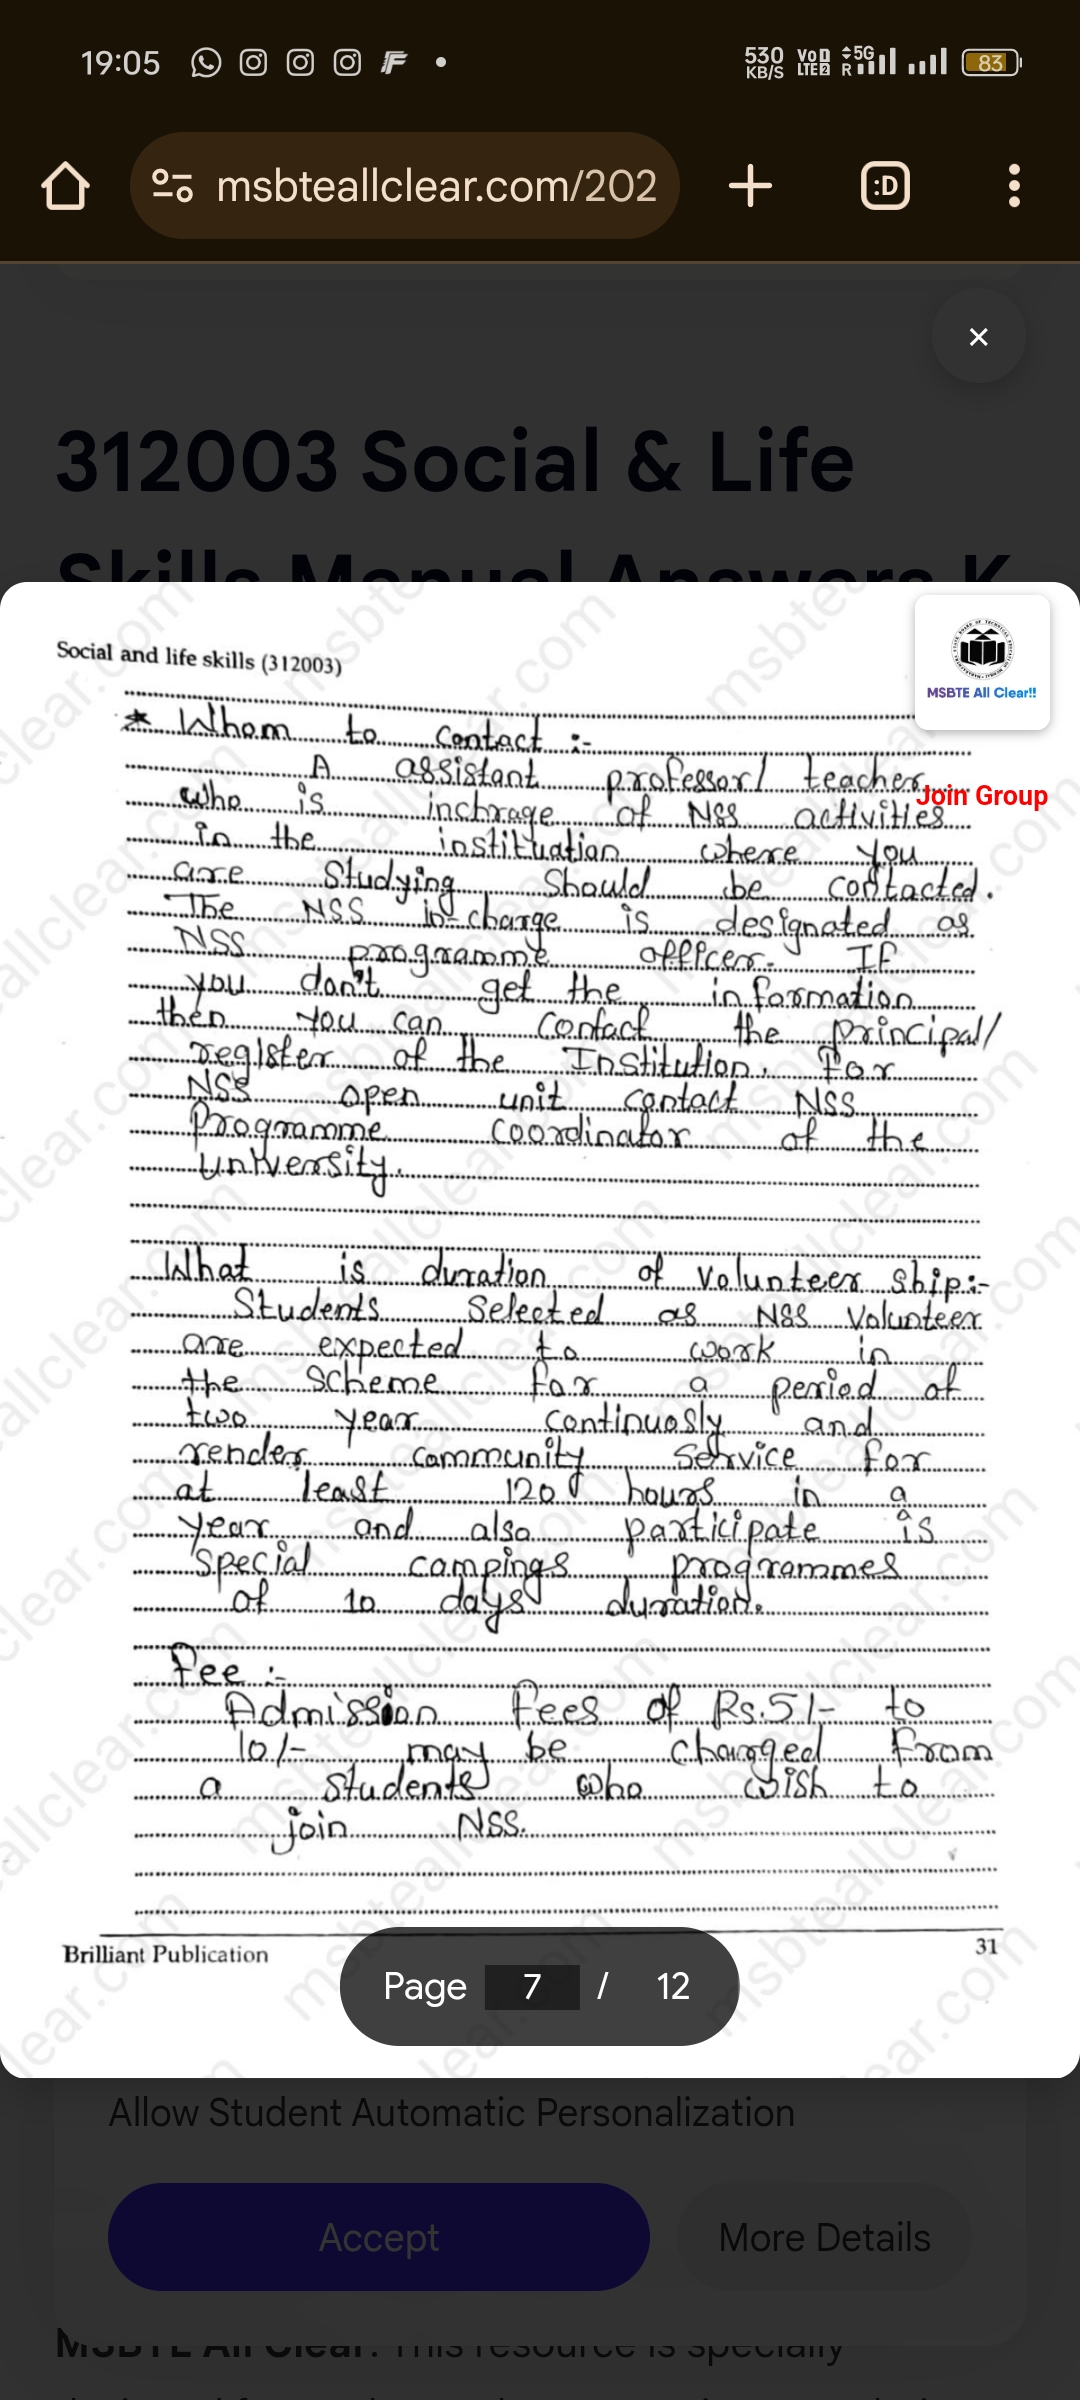 19:05
530 KB/S VoD LTE2 5G R 83
msbteallclear.com/202
:D
×
312003 Social & Life
Skills Manual Answers K
Social and life skills (312003)
MSBTE All Clear!!
Join Group
* Whom to contact :-
A assistant professor/ teacher
who is inchrage of NSS activities
in the instituation where you
are Studying Should be contacted.
The NSS in-charge is designated as
NSS programme officer. IF
you don't get the information
then you can contact the principal/
register of the Institution. For
NSS open unit contact NSS
Programme coordinator of the
University.
What is duration of volunteer ship:-
Students Selected as NSS Volunteer
are expected to work in
the scheme for a period of
two year continuosly and
render community Service for
at least 120 hours in a
year and also participate is
Special campings programmes
of 10 days duration.
Fee :-
Admission fees of Rs.5/- to
10/- may be charged from
a students who wish to
join NSS.
Brilliant Publication
31
Page 7 / 12
Allow Student Automatic Personalization
Accept
More Details
MSBTE All Clear. This resource is specially